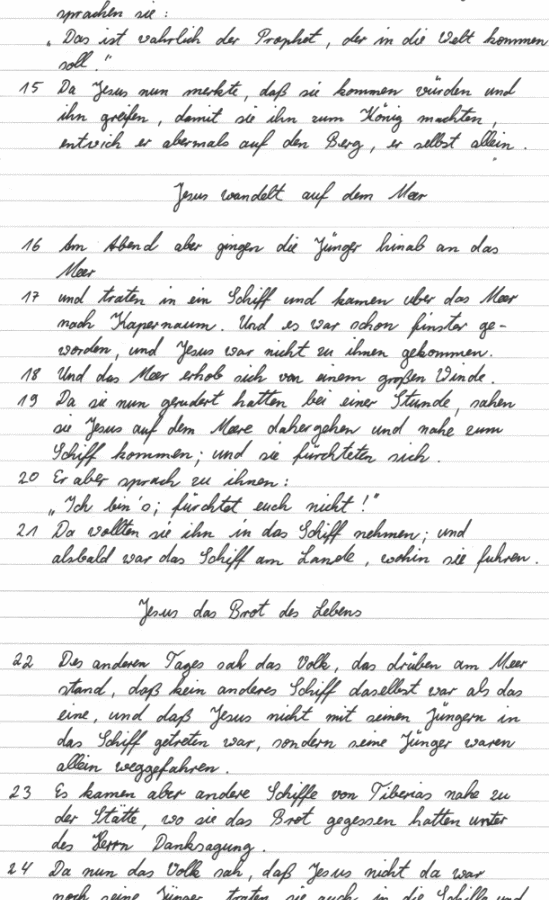 sprachen sie:
„Das ist wahrlich der Prophet, der in die Welt kommen
soll."
15 Da Jesus nun merkte, daß sie kommen würden und
ihn greifen, damit sie ihn zum König machten,
entwich er abermals auf den Berg, er selbst allein.
Jesus wandelt auf dem Meer
16 Am Abend aber gingen die Jünger hinab an das
Meer
17 und traten in ein Schiff und kamen über das Meer
nach Kapernaum. Und es war schon finster ge-
worden, und Jesus war nicht zu ihnen gekommen.
18 Und das Meer erhob sich von einem großen Winde.
19 Da sie nun gerudert hatten bei einer Stunde, sahen
sie Jesus auf dem Meere dahergehen und nahe zum
Schiff kommen; und sie fürchteten sich.
20 Er aber sprach zu ihnen:
„Ich bin's; fürchtet euch nicht!"
21 Da wollten sie ihn in das Schiff nehmen; und
alsbald war das Schiff am Lande, wohin sie fuhren.
Jesus das Brot des Lebens
22 Des anderen Tages sah das Volk, das drüben am Meer
stand, daß kein anderes Schiff daselbst war als das
eine, und daß Jesus nicht mit seinen Jüngern in
das Schiff getreten war, sondern seine Jünger waren
allein weggefahren.
23 Es kamen aber andere Schiffe von Tiberias nahe zu
der Stätte, wo sie das Brot gegessen hatten unter
des Herrn Danksagung.
24 Da nun das Volk sah, daß Jesus nicht da war
noch seine Jünger, traten sie auch in die Schiffe und